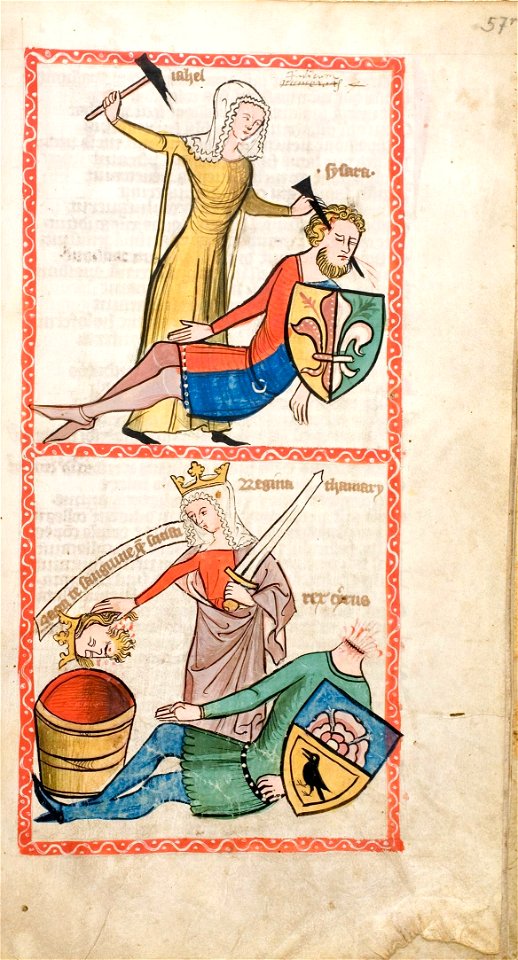 57r
iahel
Judicum
· sysara ·
Regina thamary
Sacia te sanguine q̄ sitisti
rex cirus